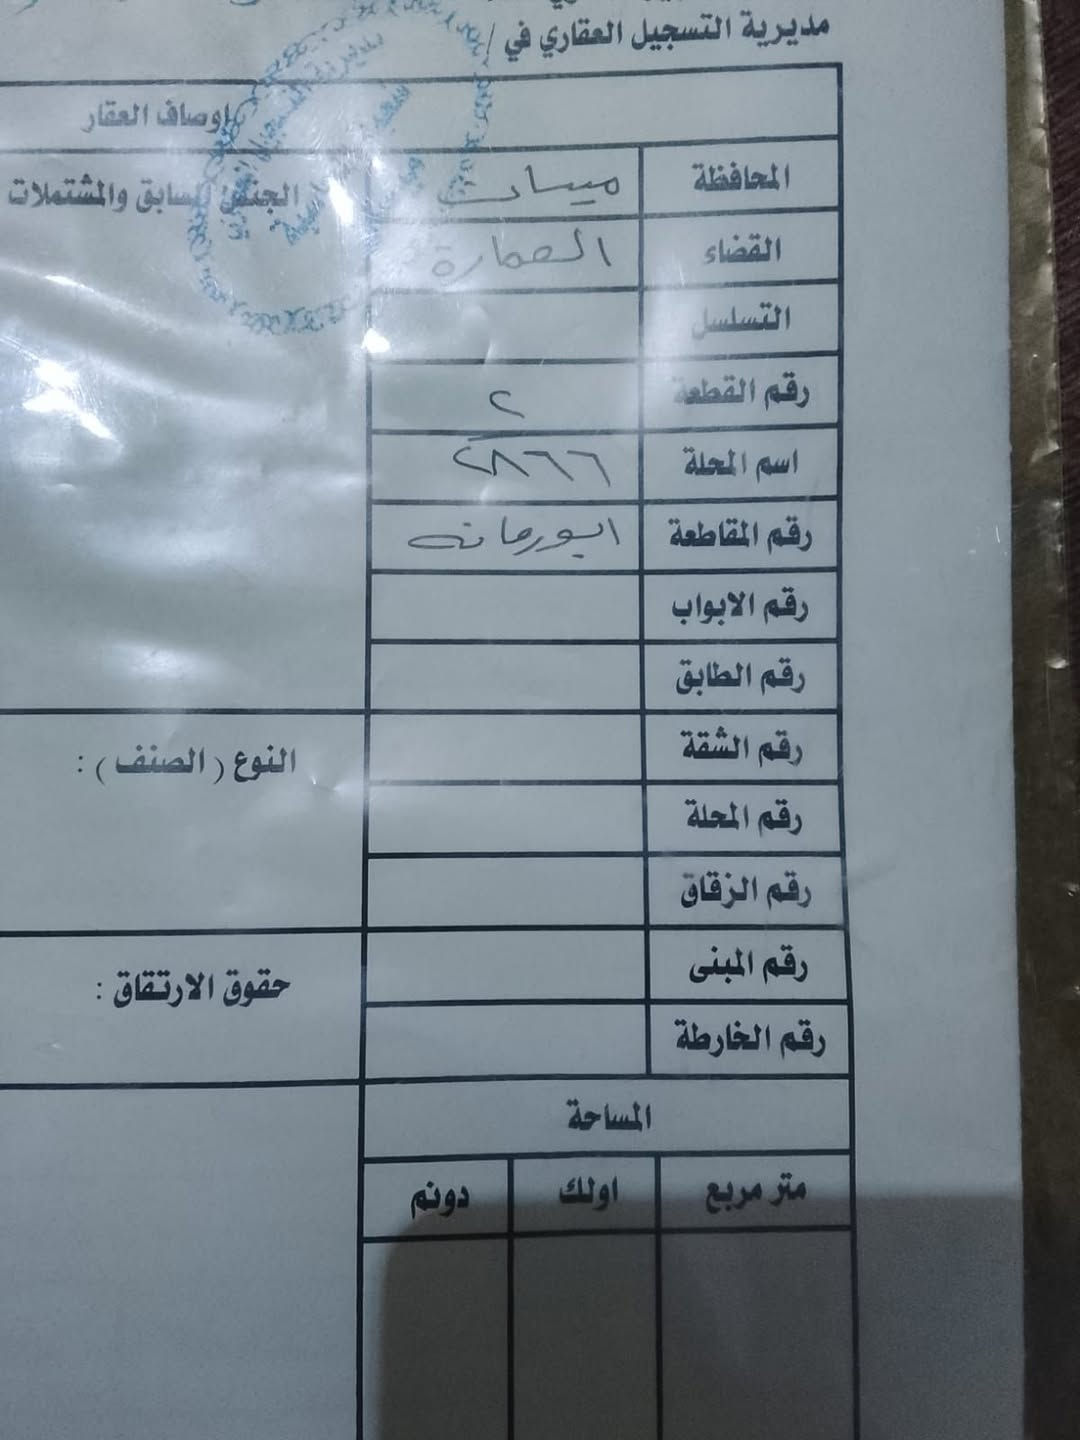 مديرية التسجيل العقاري في /
اوصاف العقار
المحافظة ميسان
الجنس السابق والمشتملات
القضاء العمارة
التسلسل
رقم القطعة ٢
اسم المحلة ٢٨٦٦
رقم المقاطعة ابورمانه
رقم الابواب
رقم الطابق
رقم الشقة
النوع ( الصنف ) :
رقم المحلة
رقم الزقاق
رقم المبنى
حقوق الارتفاق :
رقم الخارطة
المساحة
متر مربع اولك دونم